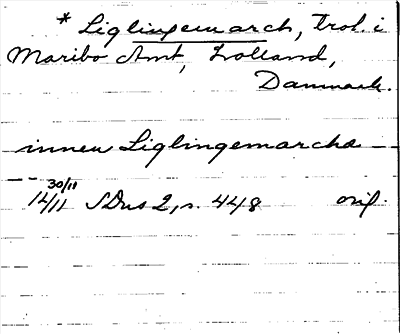 * Liglingemarch, trol. i
Maribo Amt, Lolland,
Danmark.
innen Liglingemarche —
— -
30/11
14/11 SDns 2, s. 448 orig.